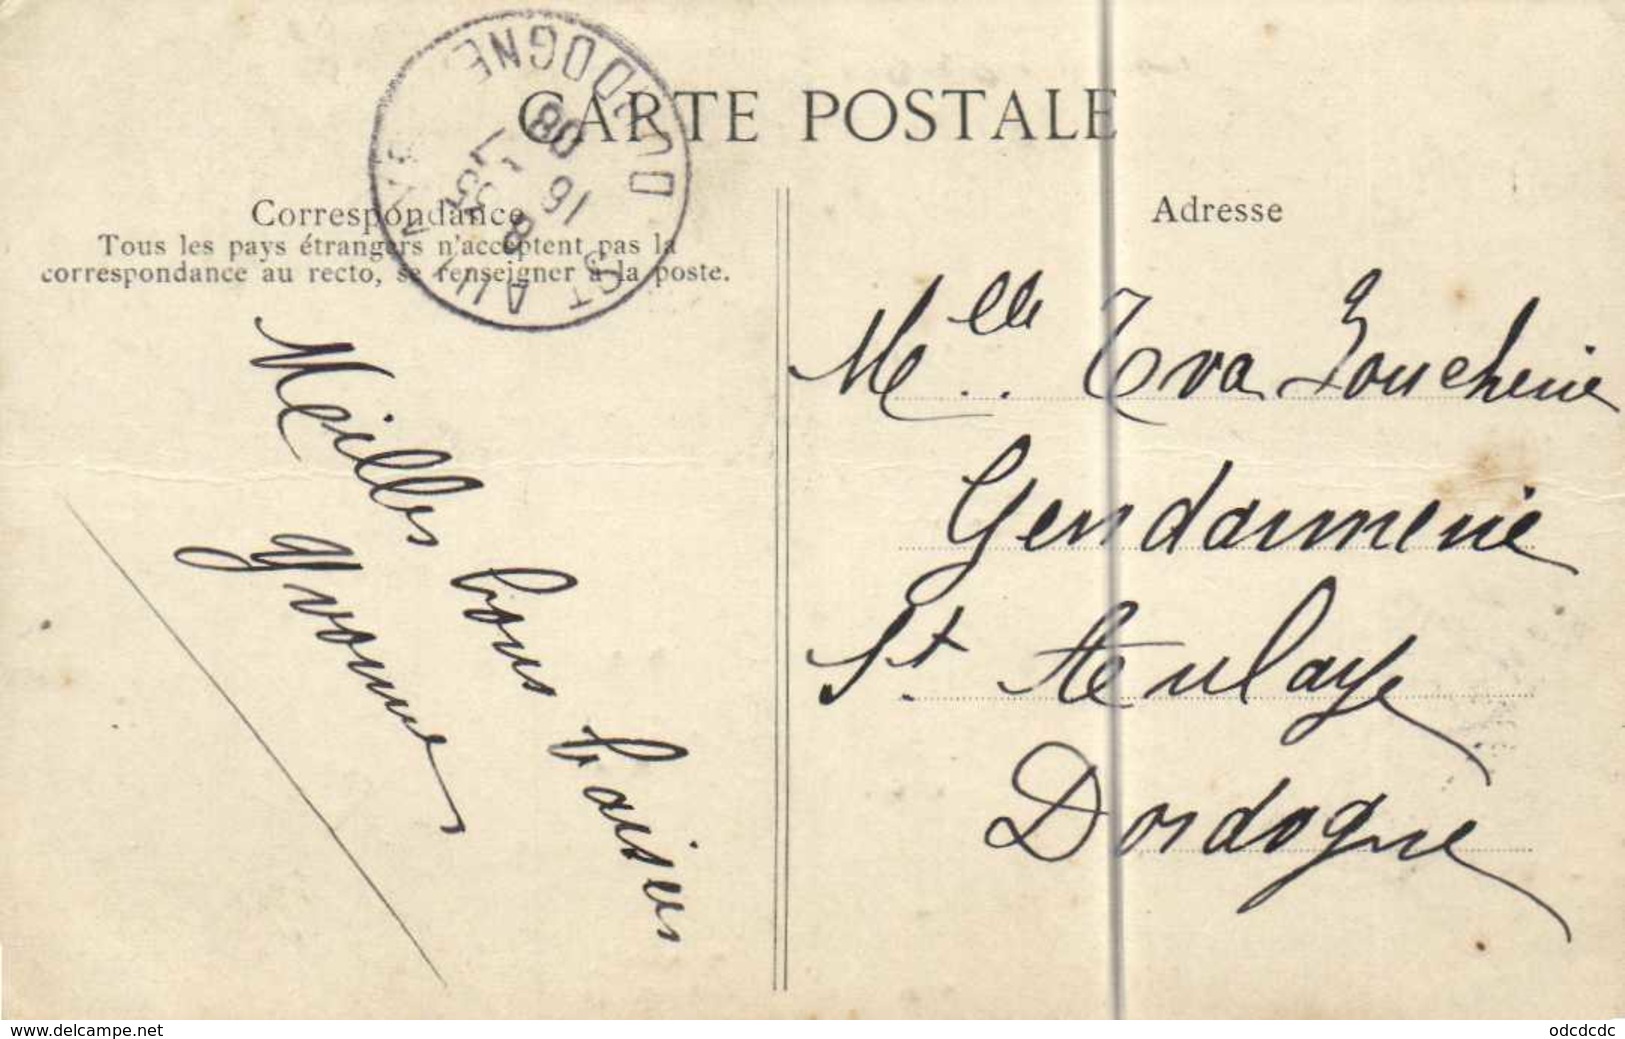 CARTE POSTALE
Correspondance
Tous les pays étrangers n'acceptent pas la
correspondance au recto, se renseigner à la poste.
Meilles bons baisers
Yvonne
Adresse
Melle Eva
Gendarmerie
St Aulaye
Dordogne
ST AULAYE
DORDOGNE
8 35
16 - 7
08
www.delcampe.net
odcdcdc